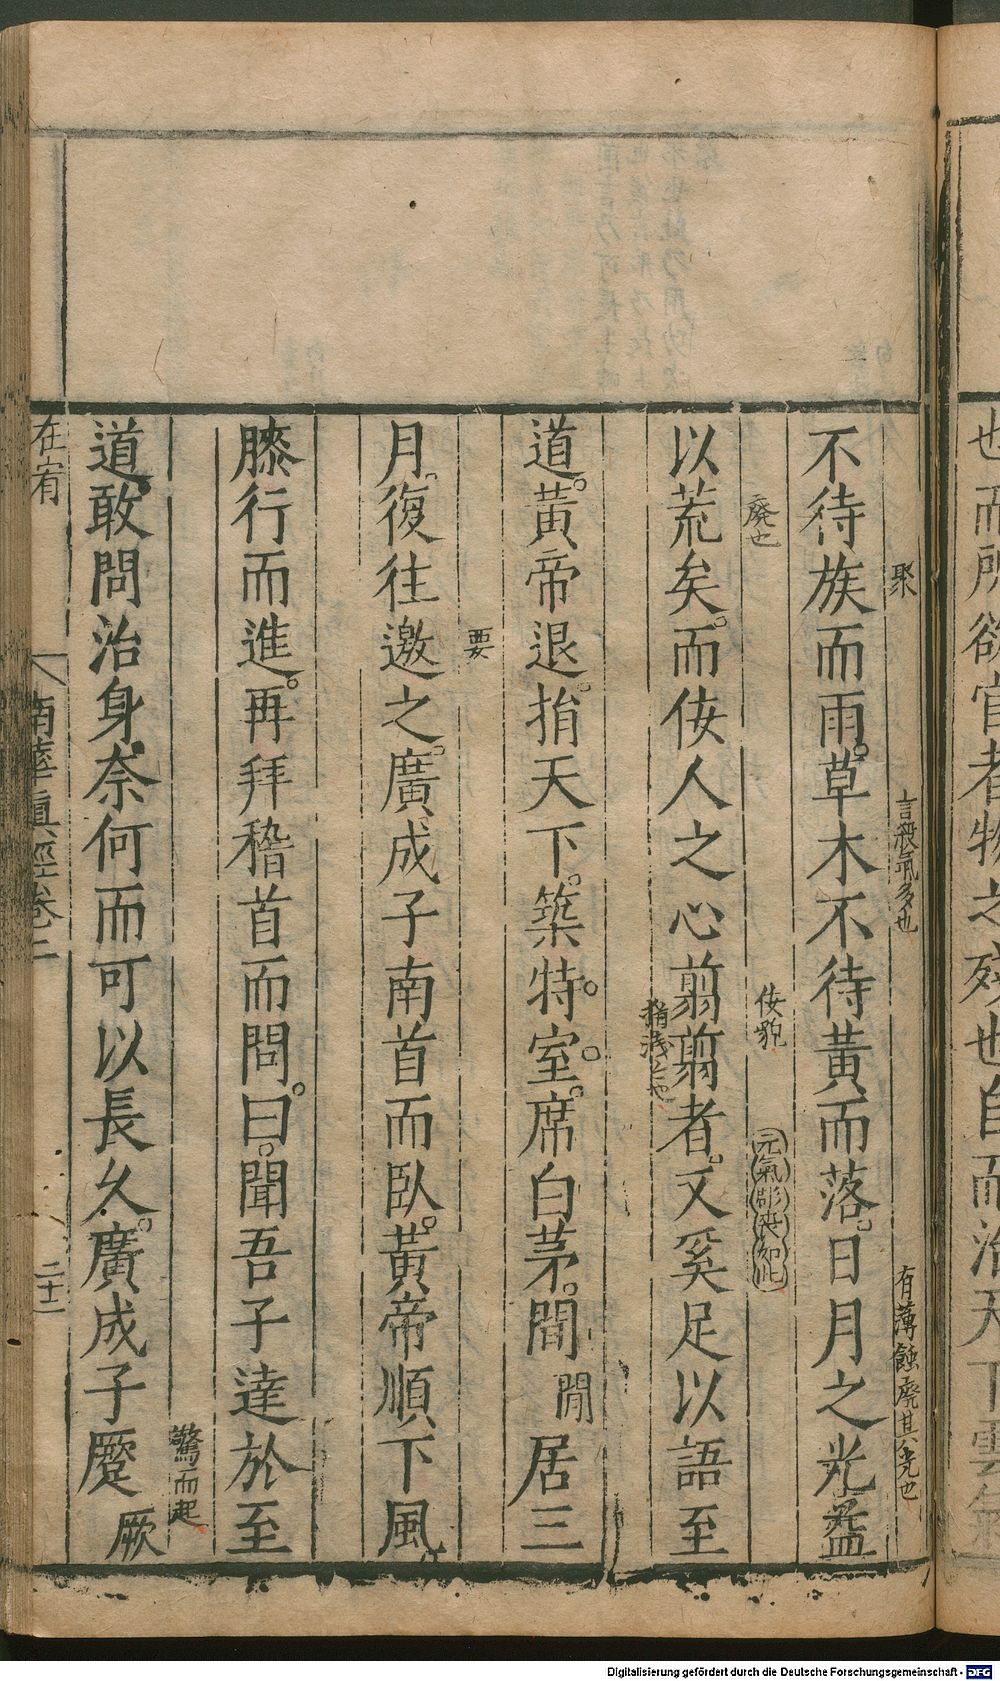 也而所欲官者物之殘也自而治天下雲氣
聚
言殺氣多也
有薄蝕廃其光也
不待族而雨。草木不待黃而落。日月之光益
廃也
佞貌
元氣彫喪如此
以荒矣。而佞人之心翦翦者。又奚足以語至
狷淺
道。黃帝退。捐天下。築特。室。席白茅。閒閒居三
要
月。復往邀之。廣成子南首而臥。黃帝順下風
膝行而進。再拜稽首而問。曰。聞吾子達於至
驚而起
道敢問治身奈何而可以長久。廣成子蹷厥
在宥
南華真經卷二
二十二
Digitalisierung gefördert durch die Deutsche Forschungsgemeinschaft - DFG